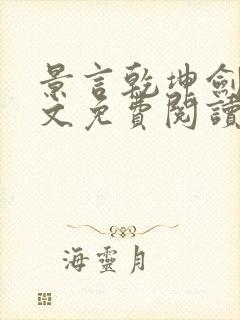 景言乾坤劍
文免費閱讀
海靈月